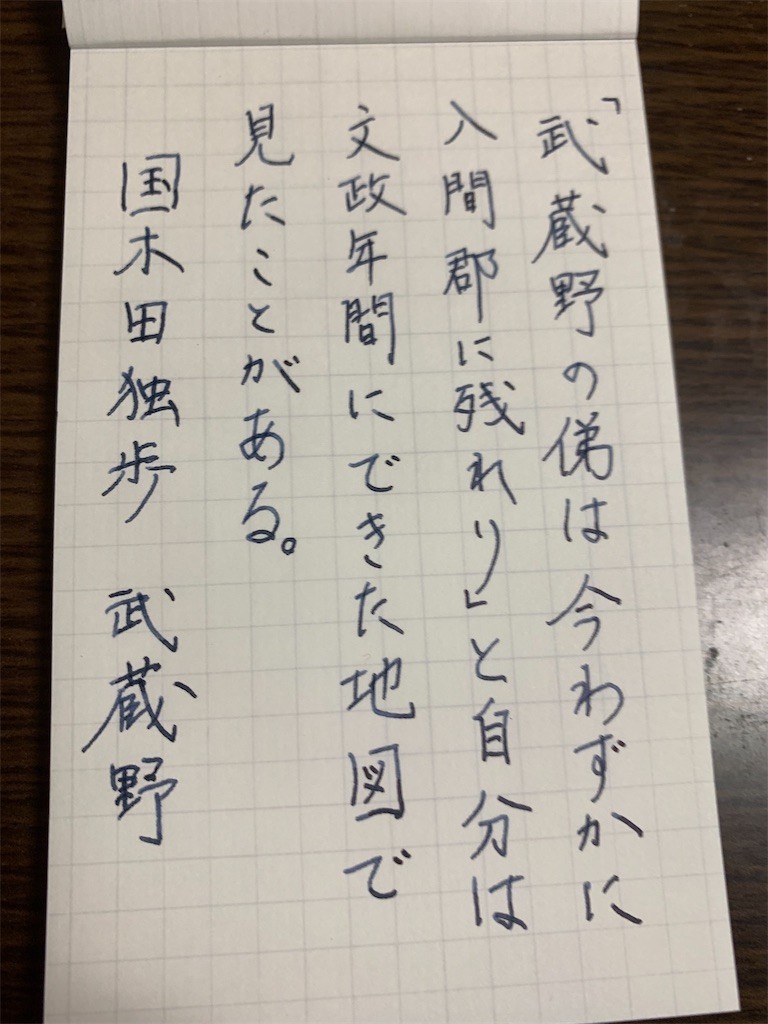 「武蔵野の俤は今わずかに
入間郡に残れり」と自分は
文政年間にできた地図で
見たことがある。
国木田独歩 武蔵野